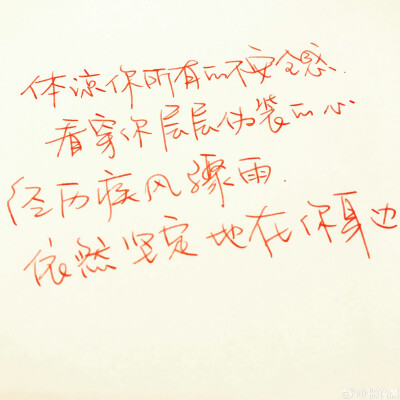 体谅你所有的不安全感.
看穿你层层伪装的心
经历疾风骤雨.
依然坚定地在你身边